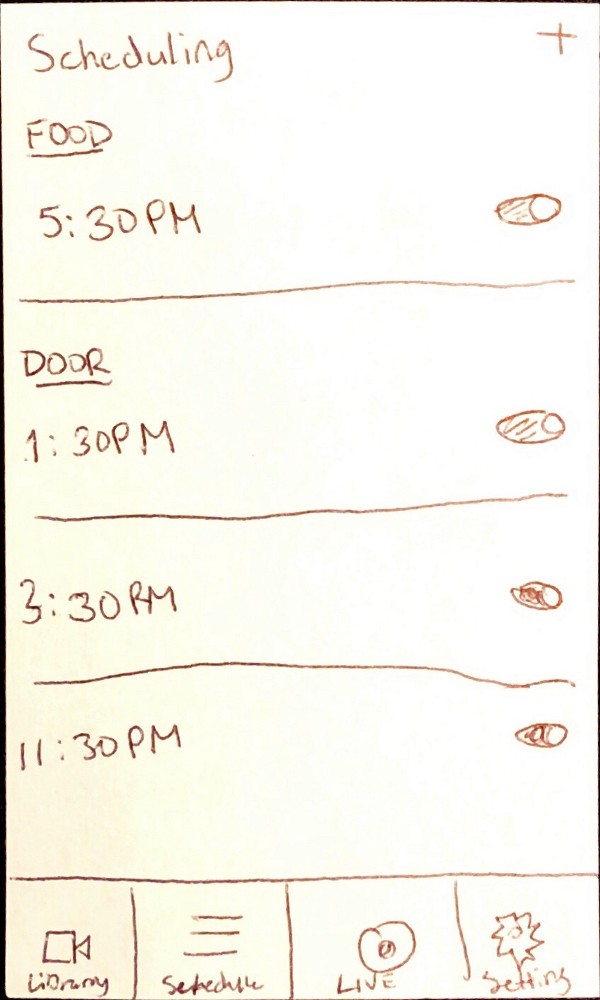 Scheduling +
FOOD
5:30PM
DOOR
1:30PM
3:30PM
11:30PM
Library Schedule LIVE Setting